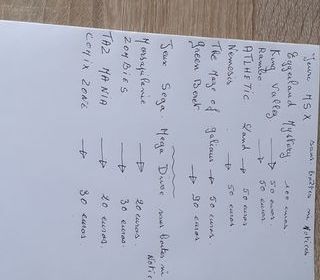 Jeux MSX sans boîtes ni Notices
Eggerland Mystery 100 euros
King Valley → 50 euros
Rambo → 50 euros
ATLHETIC Land → 50 euros
Nemesis → 50 euros
The Maze of Galious → 50 euros
Green Beret → 90 euros
Jeux Sega Mega Drive sans boites ni Notic
Marsupilami → 20 euros
ZOMBIES → 30 euros
TAZ MANIA → 20 euros
COMIX ZONE → 30 euros